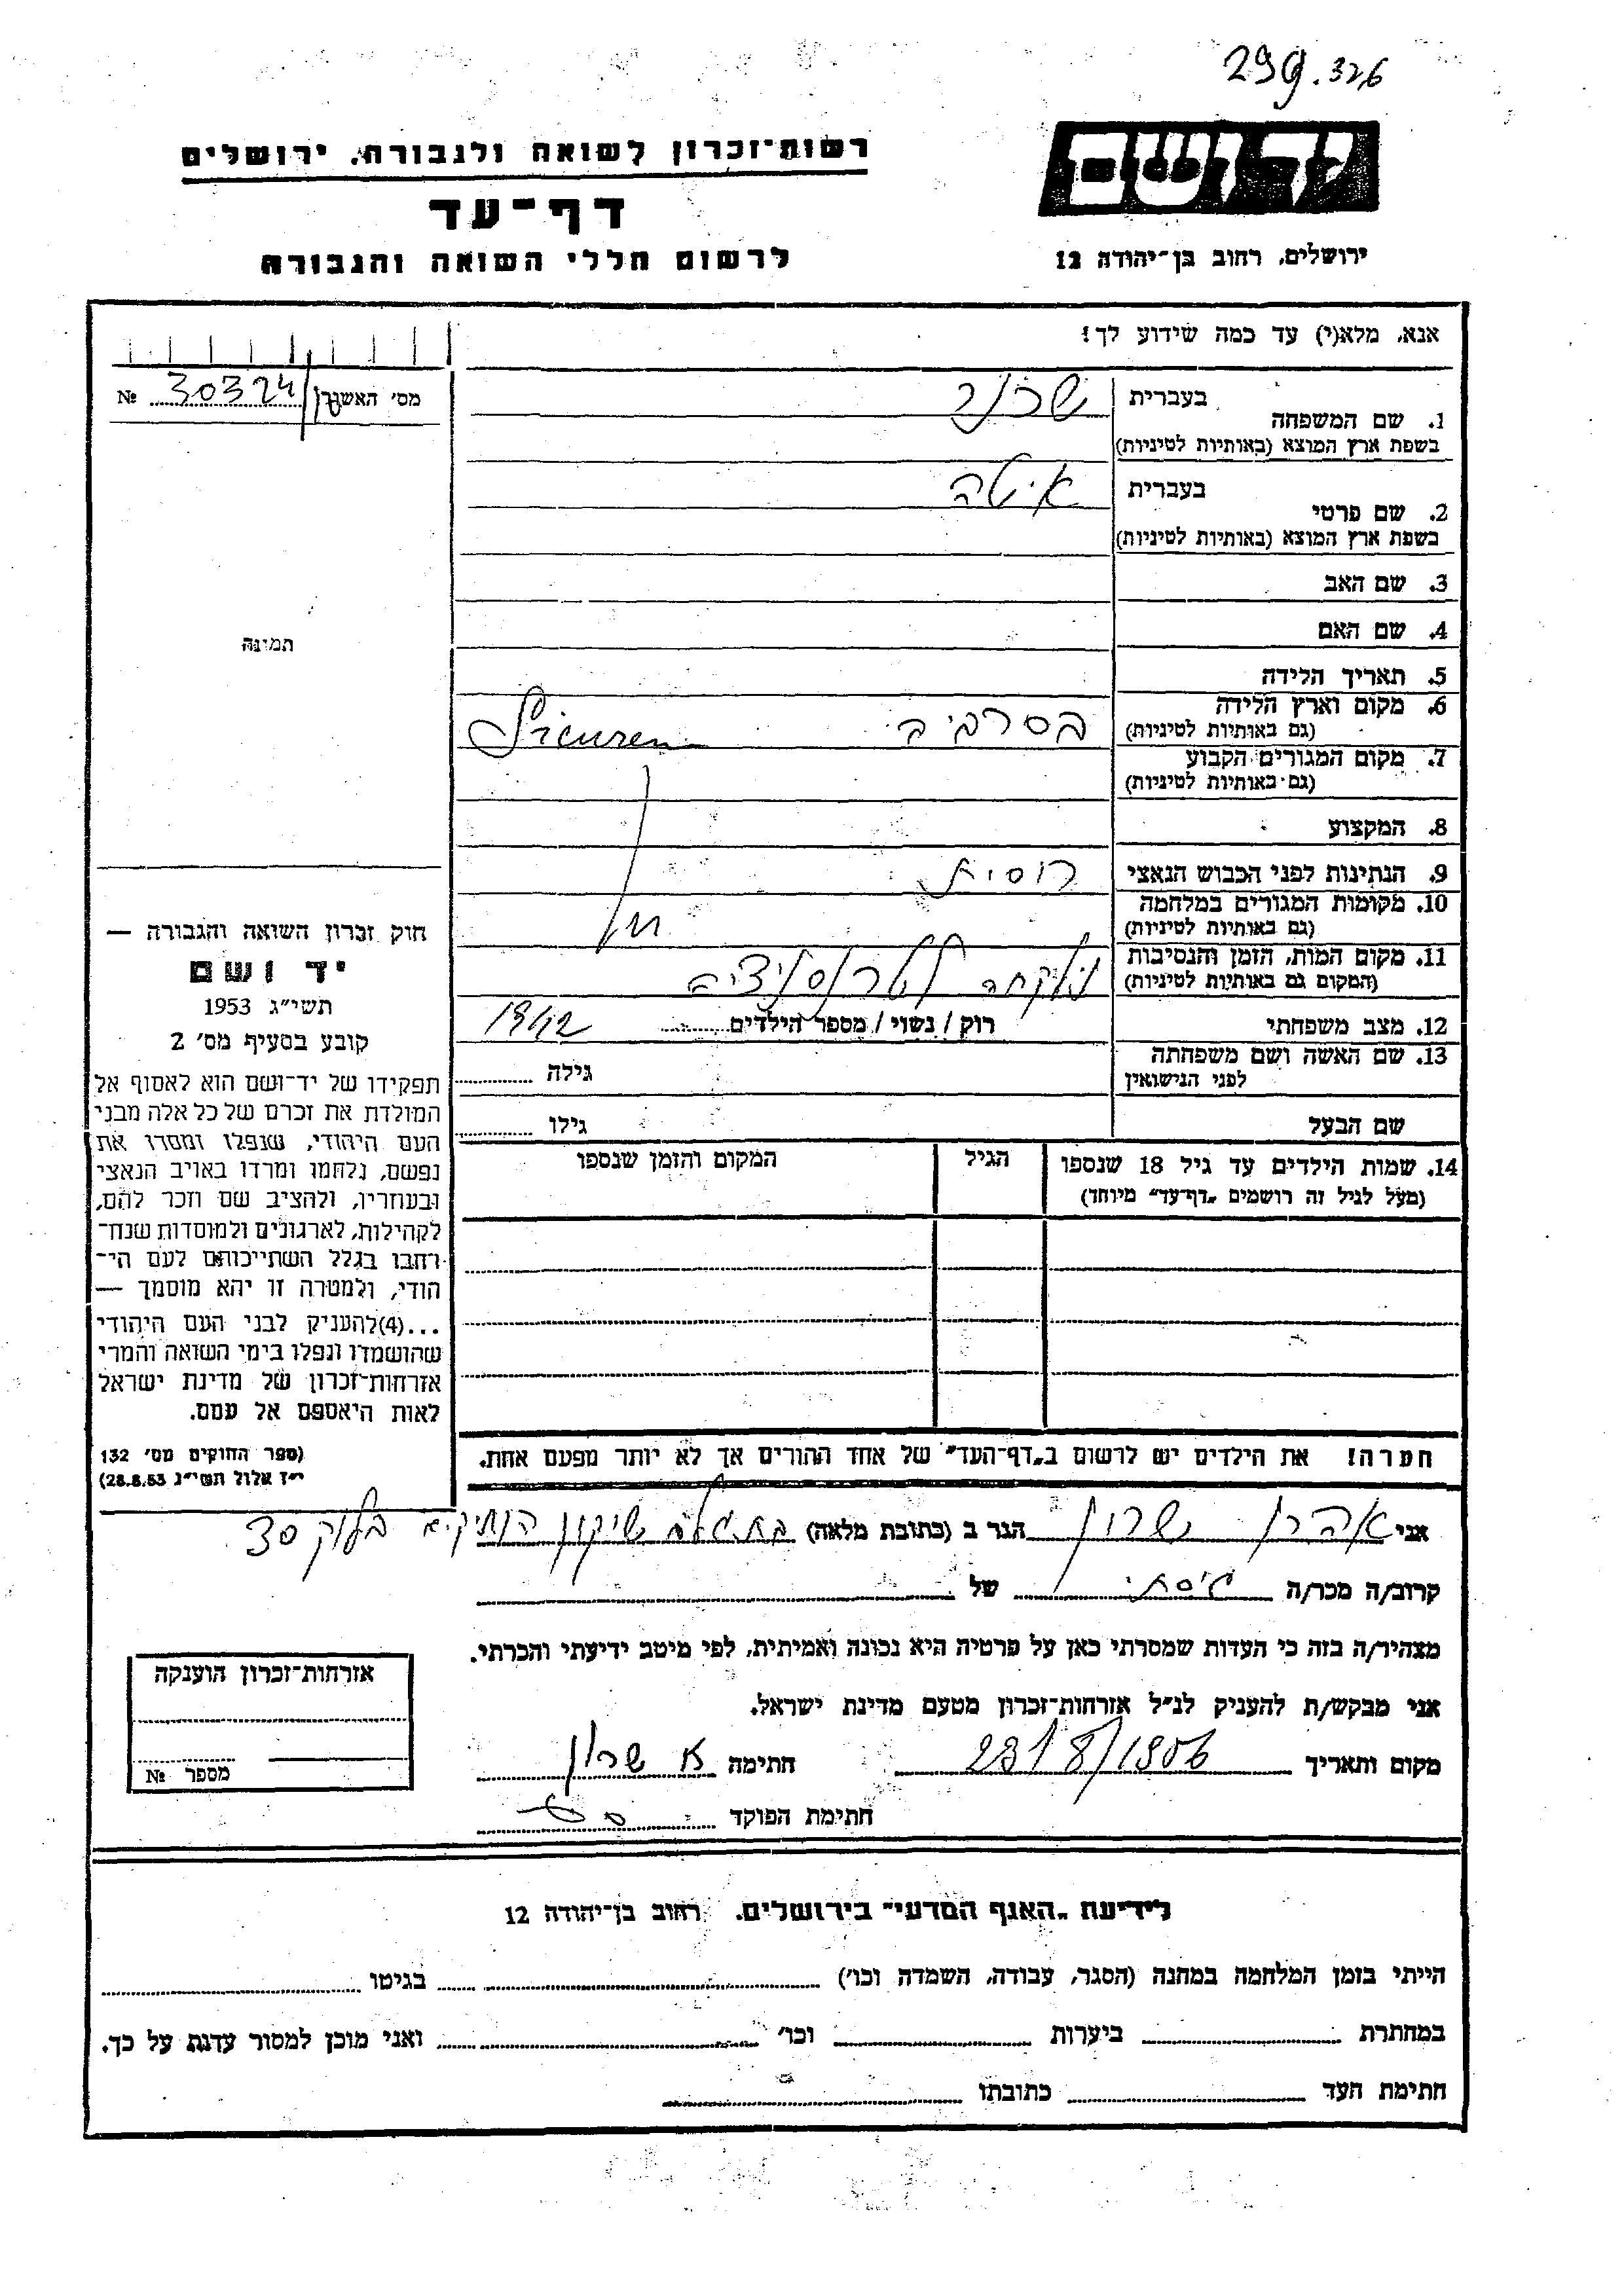 299.326
רשות־זכרון לשואה ולגבורה, ירושלים
יד ושם
דף־עד
לרשום חללי השואה והגבורה
ירושלים, רחוב בן־יהודה 12
אנא, מלא(י) עד כמה שידוע לך!
מס' האשנרון № 30324
1. שם המשפחה בעברית
בשפת ארץ המוצא (באותיות לטיניות)
2. שם פרטי בעברית איטה
בשפת ארץ המוצא (באותיות לטיניות)
3. שם האב
4. שם האם
תמונה
5. תאריך הלידה
6. מקום וארץ הלידה בסרביה
(גם באותיות לטיניות)
7. מקום המגורים הקבוע
(גם באותיות לטיניות)
8. המקצוע
9. הנתינות לפני הכבוש הנאצי רוסית
10. מקומות המגורים במלחמה
(גם באותיות לטיניות)
11. מקום המות, הזמן והנסיבות
(המקום גם באותיות לטיניות)
12. מצב משפחתי רוק / נשוי / מספר הילדים 1942
13. שם האשה ושם משפחתה גילה
לפני הנישואין
שם הבעל גילו
14. שמות הילדים עד גיל 18 שנספו הגיל המקום והזמן שנספו
(מעל לגיל זה רושמים "דף־עד" מיוחד)
חוק זכרון השואה והגבורה —
יד ושם
תשי"ג 1953
קובע בסעיף מס' 2
תפקידו של יד־ושם הוא לאסוף אל
המולדת את זכרם של כל אלה מבני
העם היהודי, שנפלו ומסרו את
נפשם, נלחמו ומרדו באויב הנאצי
ובעוזריו, ולהציב שם וזכר להם,
לקהילות, לארגונים ולמוסדות שנח־
רחבו בגלל השתייכותם לעם הי־
הודי, ולמטרה זו יהא מוסמך —
...(4)להעניק לבני העם היהודי
שהושמדו ונפלו בימי השואה והמרי
אזרחות־זכרון של מדינת ישראל
לאות היאספם אל עמם.
(ספר החוקים מס' 132
י"ז אלול תשי"ג 28.8.53)
הערה! את הילדים יש לרשום ב"דף־העד" של אחד ההורים אך לא יותר מפעם אחת.
אני אהרן שרון הגר ב (כתובת מלאה) שיכון הותיקים בלוק 30
קרוב/ה מכר/ה גיסתי של
מצהיר/ה בזה כי העדות שמסרתי כאן על פרטיה היא נכונה ואמיתית, לפי מיטב ידיעתי והכרתי.
אני מבקש/ת להעניק לנ"ל אזרחות־זכרון מטעם מדינת ישראל.
מקום ותאריך 23/8/1956 חתימה א שרון
חתימת הפוקד
אזרחות־זכרון הוענקה
מספר №
לידיעת "האגף המדעי" בירושלים, רחוב בן־יהודה 12
הייתי בזמן המלחמה במחנה (הסגר, עבודה, השמדה וכו') בגיטו
במחתרת ביערות וכו' ואני מוכן למסור עדות על כך.
חתימת העד כתובתו